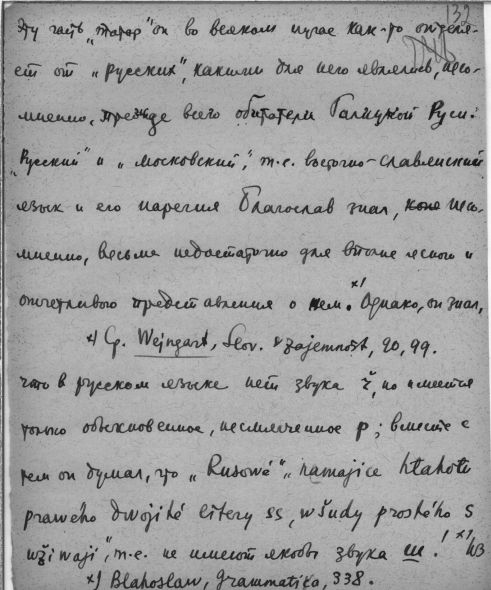 132
Эту часть „татар" он во всяком случае как-то отделя-
ет от „русских", какими для него являлись, несо-
мненно, прежде всего обитатели Галицкой Руси.
„Русский" и „московский", т.е. восточно-славянский
язык и его наречия Благослав знал, несо-
мненно, весьма недостаточно для вполне ясного и
отчетливого представления о нем. x) Однако, он знал,
x) Ср. Wejngart, Slov. vzájemnost, 90, 99.
что в русском языке нет звука ř, но имеется
только обыкновенное, несмягченное р; вместе с
тем он думал, что „Rusowé" „namajíce hlaholu
prawého dwojité litery ss, wšudy prostého s
užiwají", т.е. не имеют якобы звука ш.! x) Из
x) Blahoslaw, Grammatika, 338.